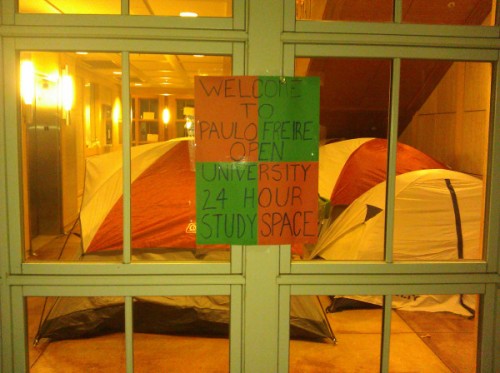 WELCOME
TO
PAULO FREIRE
OPEN
UNIVERSITY
24 HOUR
STUDY SPACE